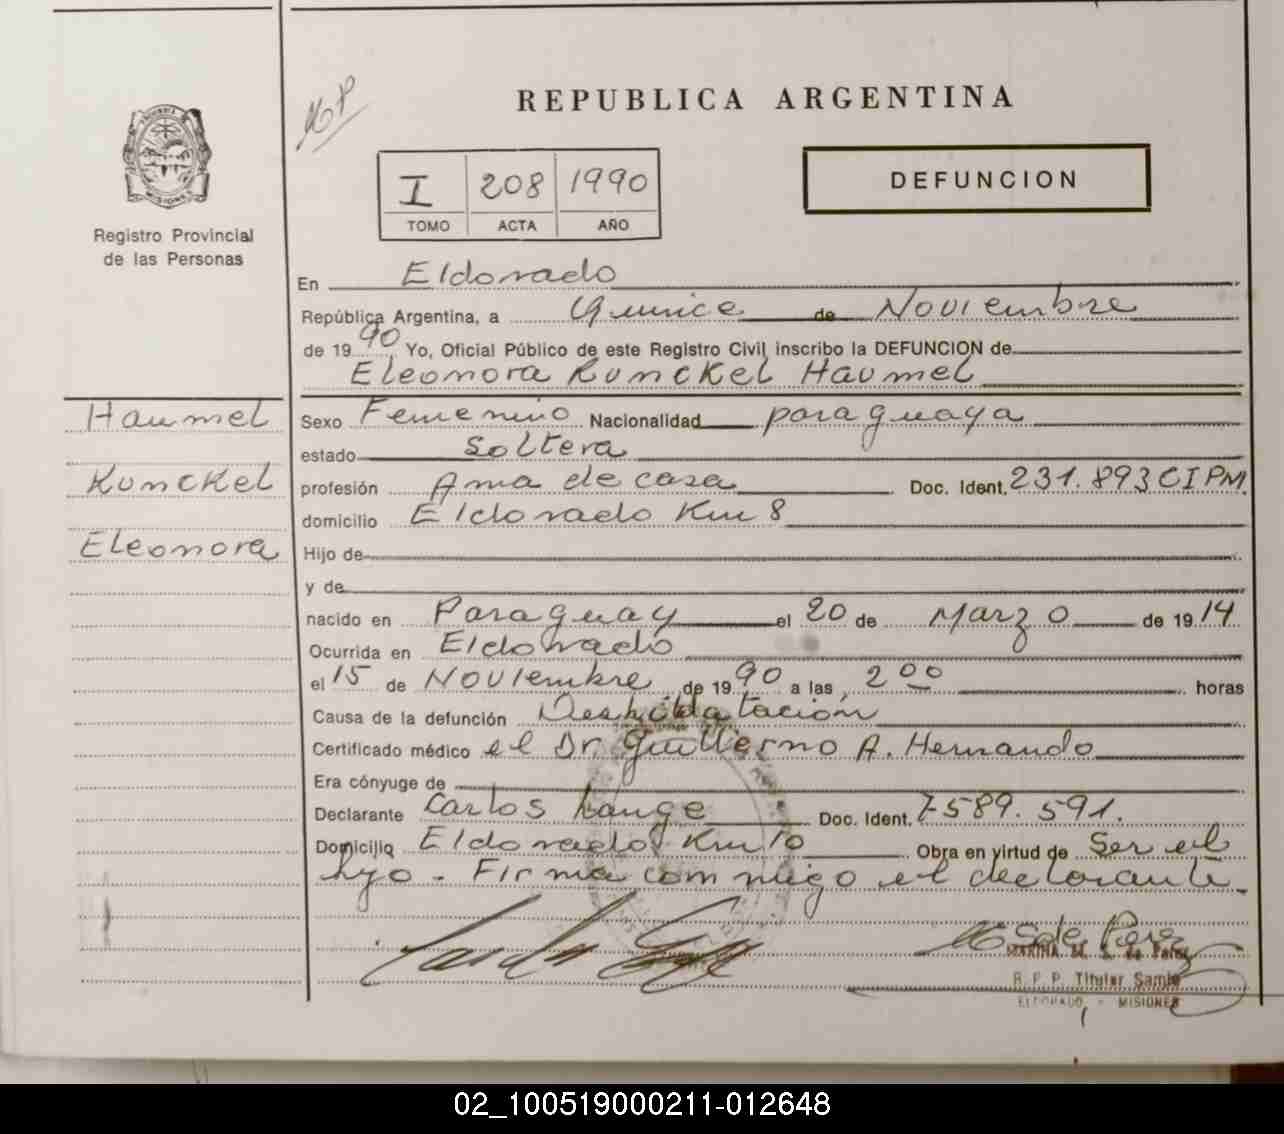 REPUBLICA ARGENTINA
I 208 1990
TOMO ACTA AÑO
DEFUNCION
Registro Provincial
de las Personas
MISIONES
En Eldorado
República Argentina, a Quince de Noviembre
de 1990 Yo, Oficial Público de este Registro Civil inscribo la DEFUNCION de
Eleonora Kunckel Haumel
Haumel
Kunckel
Eleonora
Sexo Femenino Nacionalidad paraguaya
estado Soltera
profesión Ama de casa Doc. Ident. 231.893 CI PM.
domicilio Eldorado Km 8
Hijo de
y de
nacido en Paraguay el 20 de Marzo de 1914
Ocurrida en Eldorado
el 15 de Noviembre de 1990 a las 2 00 horas
Causa de la defunción Deshidratación
Certificado médico el Dr. Guillermo A. Hernando
Era cónyuge de
Declarante Carlos Lange Doc. Ident. 7589.591.
Domicilio Eldorado Km 10 Obra en virtud de Ser el
hijo - Firma conmigo el declarante
MARINA M. S. de Perez
R. P. P. Titular
ELDORADO - MISIONES
02_100519000211-012648